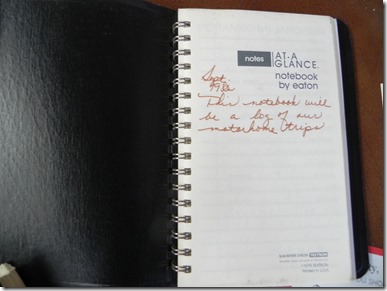 notes
AT-A
GLANCE.
notebook
by eaton
Sept.
This notebook will
be a log of our
motorhome trips